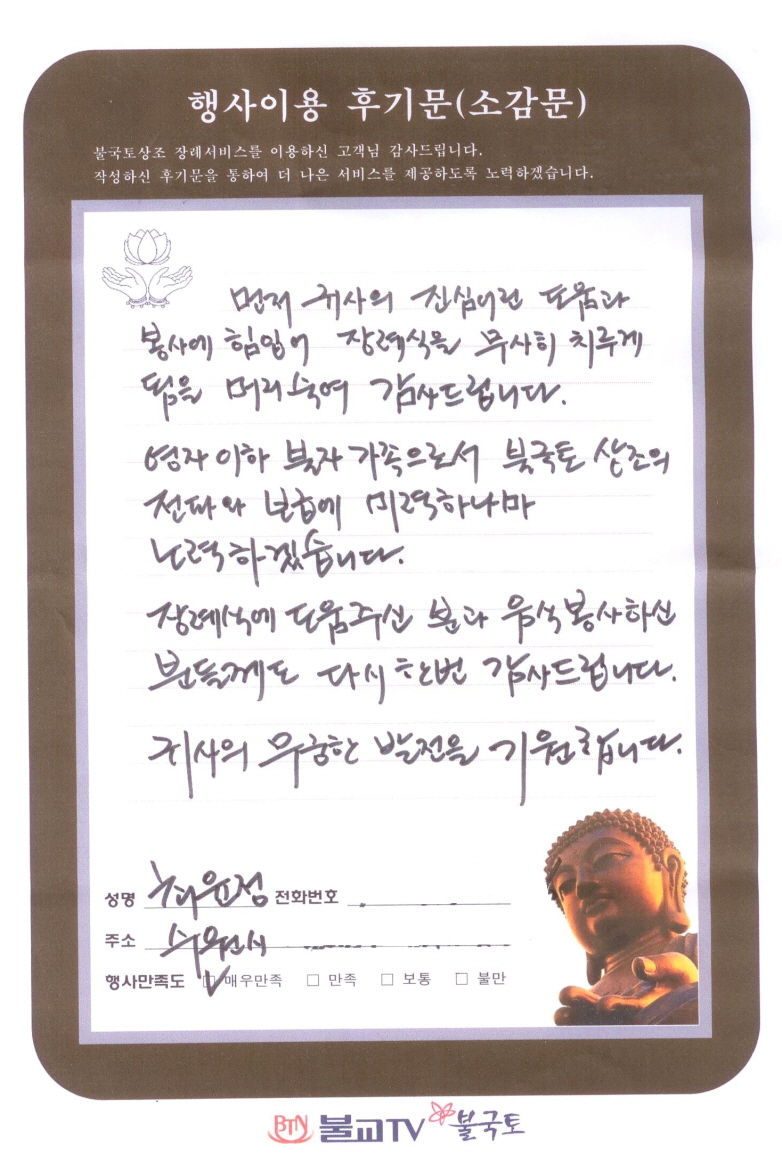 행사이용 후기문(소감문)
불국토상조 장례서비스를 이용하신 고객님 감사드립니다.
작성하신 후기문을 통하여 더 나은 서비스를 제공하도록 노력하겠습니다.
먼저 귀사의 진심어린 도움과
봉사에 힘입어 장례식을 무사히 치루게
됨을 머리숙여 감사드립니다.
영자 이하 불자 가족으로서 불국토 상조의
전파와 보급에 미력하나마
노력하겠습니다.
장례식에 도움주신 분과 음식봉사하신
분들께도 다시 한번 감사드립니다.
귀사의 무궁한 발전을 기원합니다.
성명 최윤정 전화번호
주소 수원시
행사만족도 □ 매우만족 □ 만족 □ 보통 □ 불만
BTN 불교TV 불국토